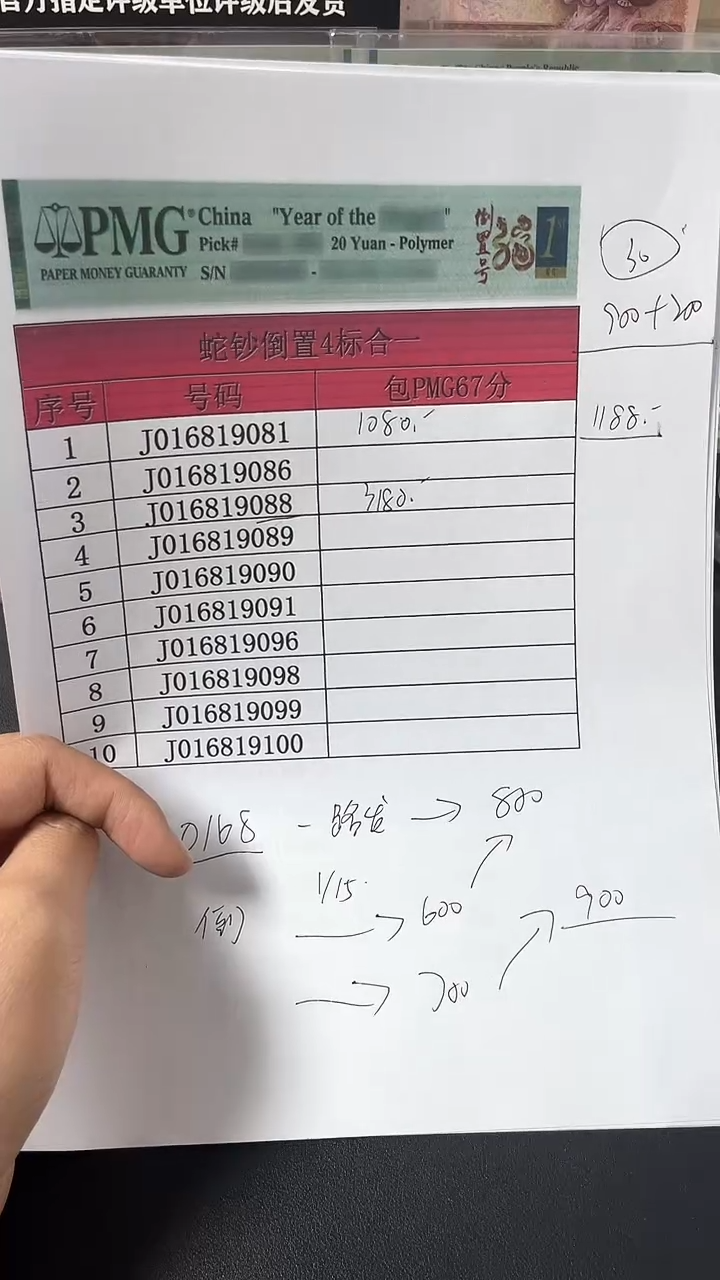 官方指定评级单位评级后发货
China People's Republic
PMG® China "Year of the "
Pick# 20 Yuan - Polymer
PAPER MONEY GUARANTY S/N -
倒置号 福 1ST
30
900+200
1188.-
蛇钞倒置4标合一
序号 号码 包PMG67分
1 J016819081 1080.-
2 J016819086
3 J016819088 3180.-
4 J016819089
5 J016819090
6 J016819091
7 J016819096
8 J016819098
9 J016819099
10 J016819100
0168 - 路发 → 800
倒 1/15. → 600
→ 700
900